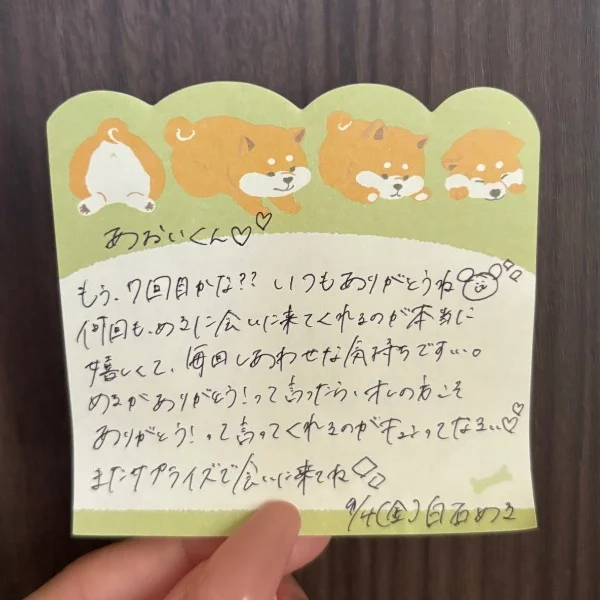 あおいくん♡♡
もう、7回目かな?? いつもありがとうね
何回も、めるに会いに来てくれるのが本当に
嬉しくて、毎回しあわせな気持ちですぃ。
めるがありがとう!って言ったら、オレの方こそ
ありがとう!って言ってくれるのがキュンってなるぃ♡♡
またサプライズで会いに来てね
9/4(金)白石める